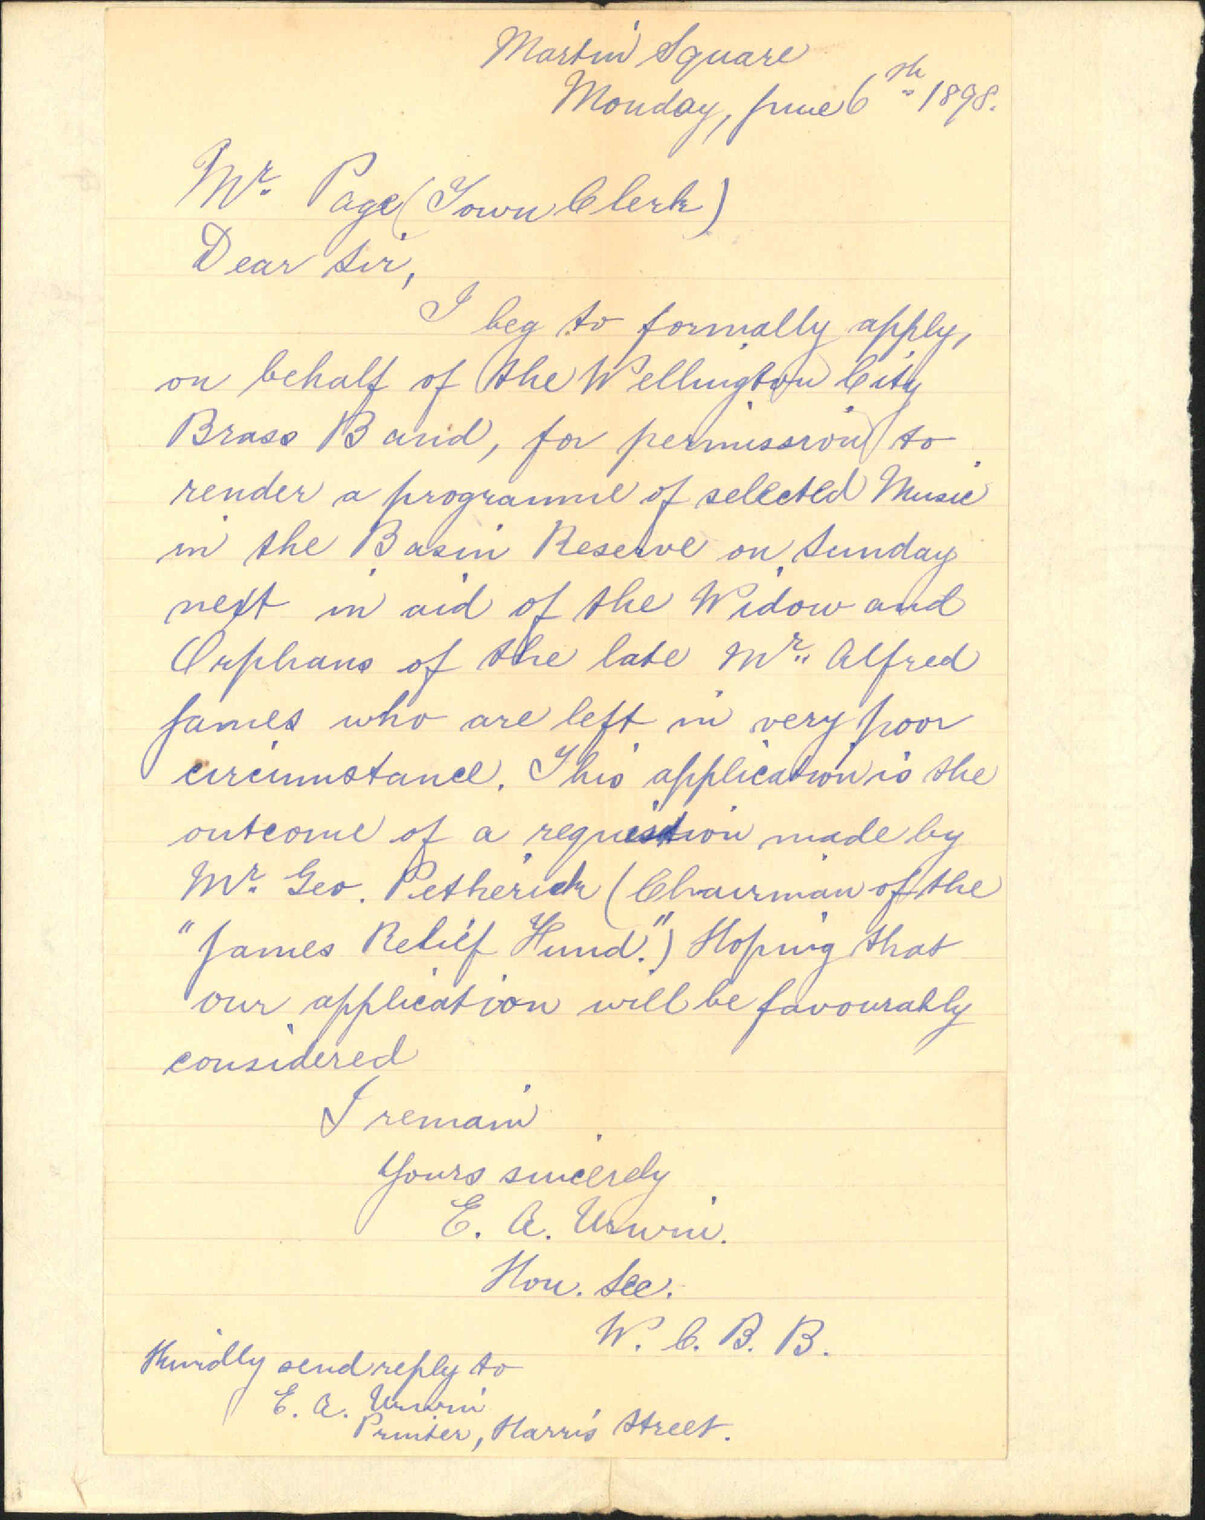 Martin Square
Monday, June 6th 1898.
Mr. Page (Town Clerk)
Dear Sir,
I beg to formally apply,
on behalf of the Wellington City
Brass Band, for permission to
render a programme of selected Music
in the Basin Reserve on Sunday
next in aid of the Widow and
Orphans of the late Mr. Alfred
James who are left in very poor
circumstance. This application is the
outcome of a requisition made by
Mr. Geo. Petherick (Chairman of the
"James Relief Fund.") Hoping that
our application will be favourably
considered
I remain
Yours sincerely
E. A. Urwin.
Hon. Sec.
W. C. B. B.
Kindly send reply to
E. A. Urwin
Printer, Harris Street.